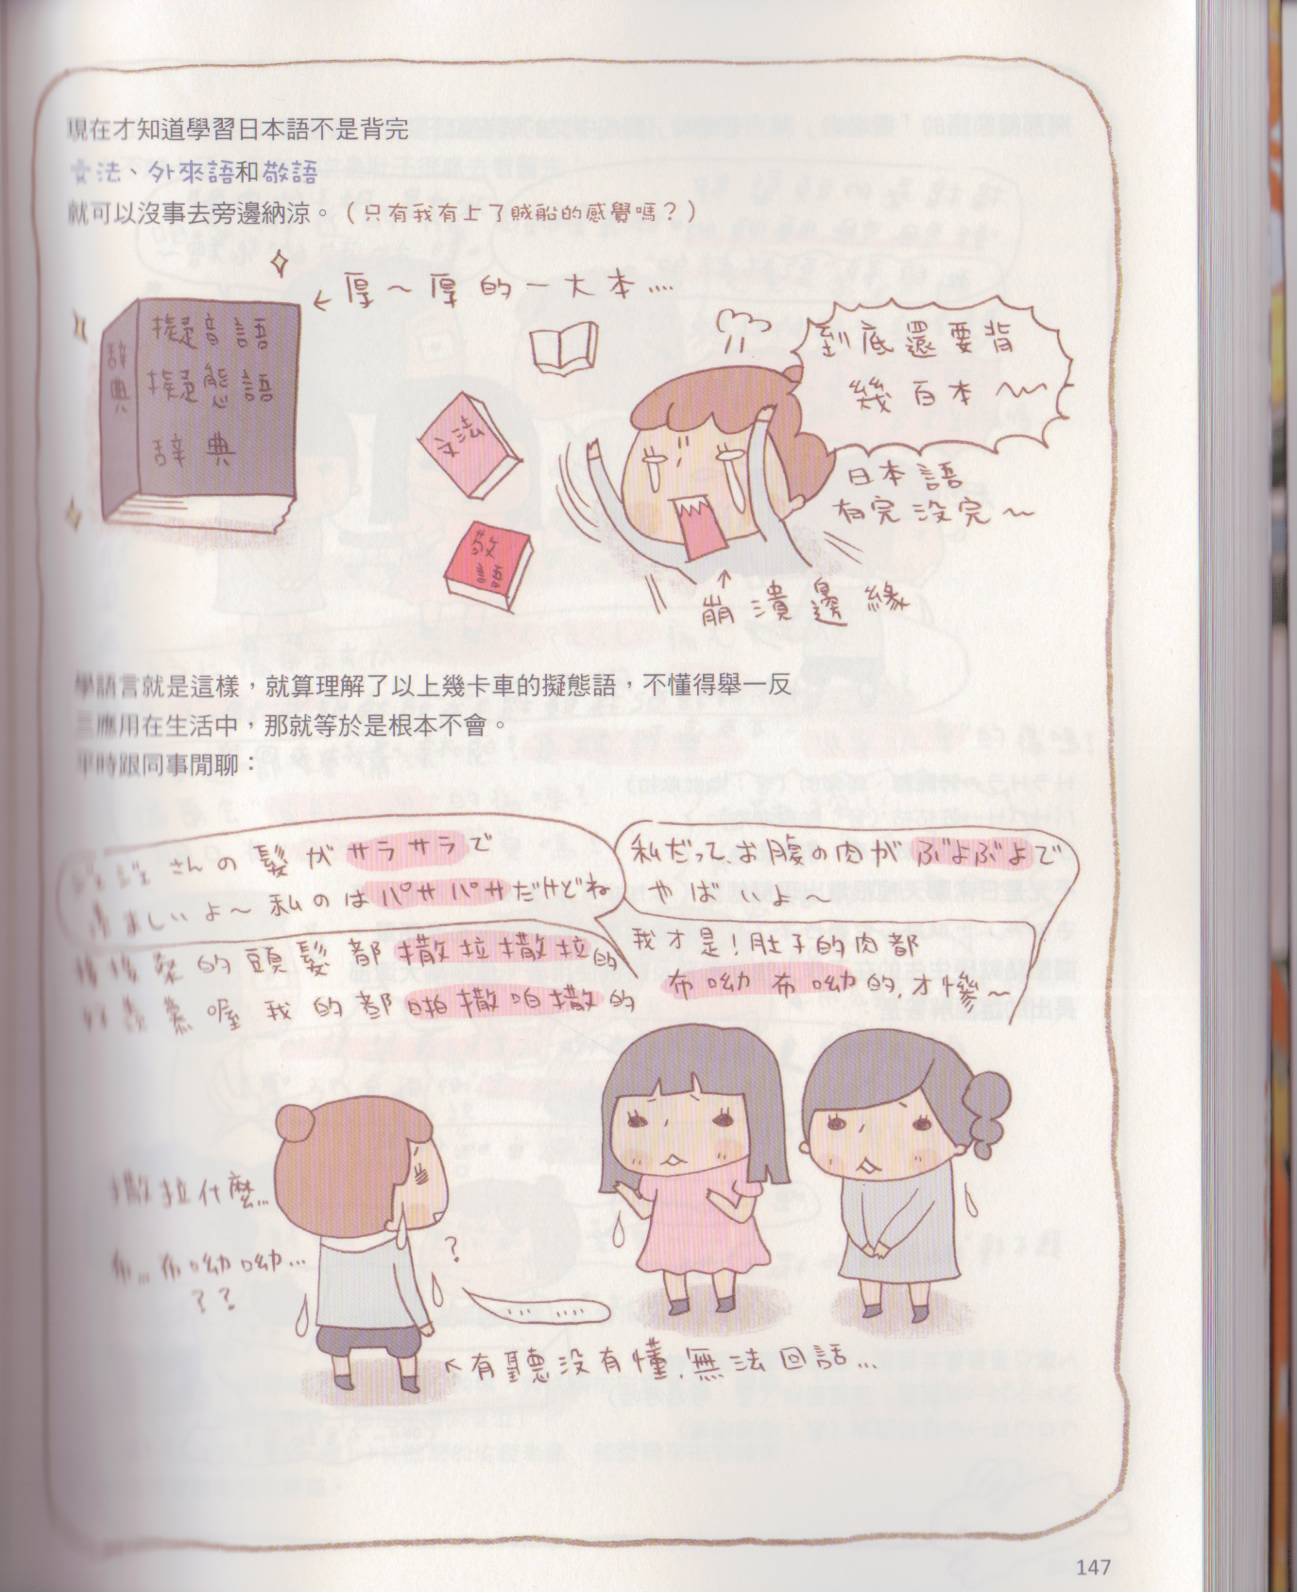 現在才知道學習日本語不是背完
文法、外來語和敬語
就可以沒事去旁邊納涼。（只有我有上了賊船的感覺嗎？）
←厚～厚的一大本....
辞典
擬音語
擬態語
辞典
文法
敬語
到底還要背
幾百本～
日本語
有完沒完～
↑
崩潰邊緣
學語言就是這樣，就算理解了以上幾卡車的擬態語，不懂得舉一反
三應用在生活中，那就等於是根本不會。
平時跟同事閒聊：
ジェジェさんの髪がサラサラで
ましいよ～私のはパサパサだけどね
的頭髮都撒拉撒拉的
喔我的都啪撒啪撒的
私だって、お腹の肉がぶよぶよで
やばいよ～
我才是！肚子的肉都
布呦布呦的，才慘～
撒拉什麼...
布...布呦呦...
？？
?
... ....
←有聽沒有懂，無法回話...
147